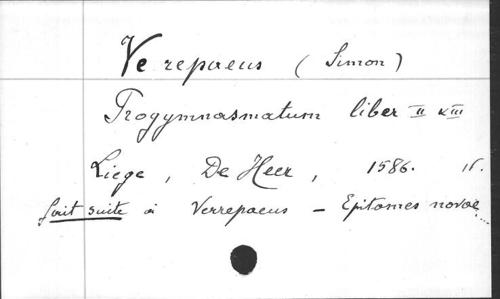 Verepaeus (Simon)
Progymnasmatum liber II & III
Liege, De Heer, 1586. 16.
fait suite à Verrepaeus - Epitomes novae...